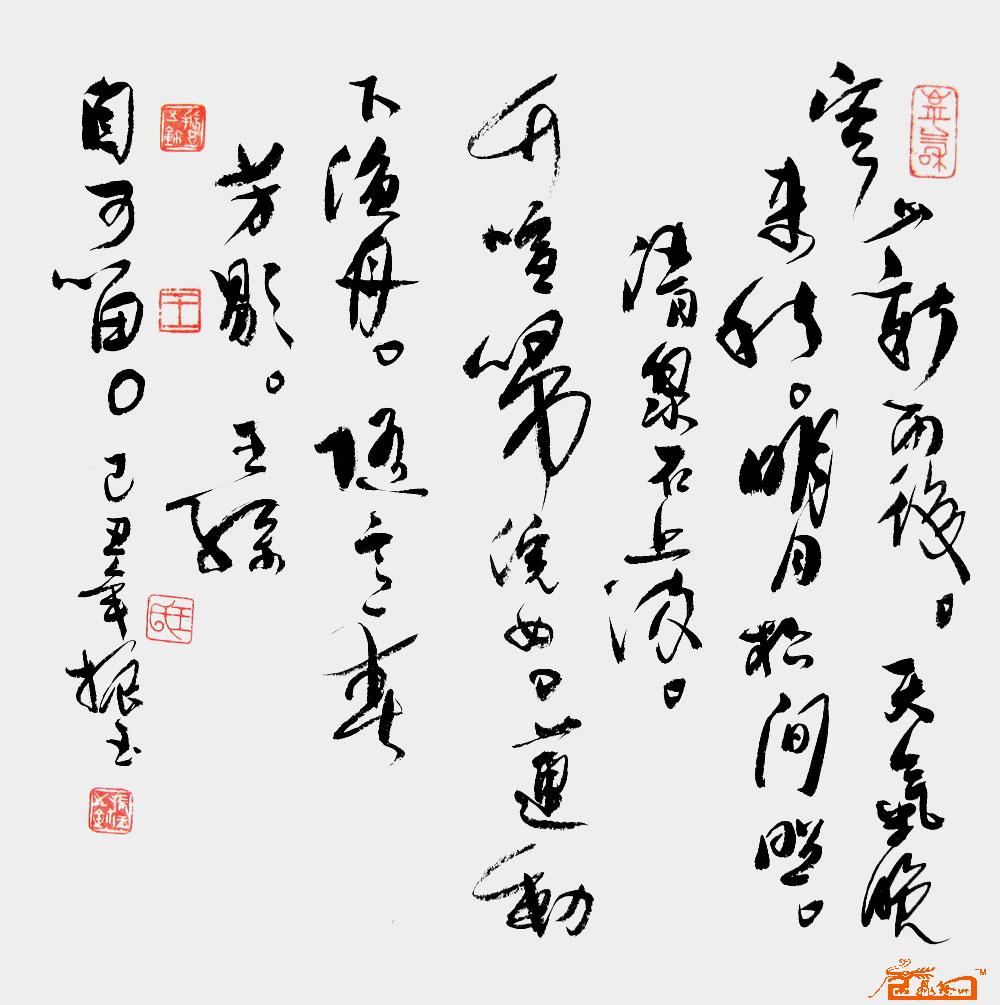 空山新雨後。天氣晚
來秋。明月松間照。
清泉石上流。
竹喧歸浣女。蓮動
下漁舟。隨意春
芳歇。王孫
自可留。己丑年振玉
王